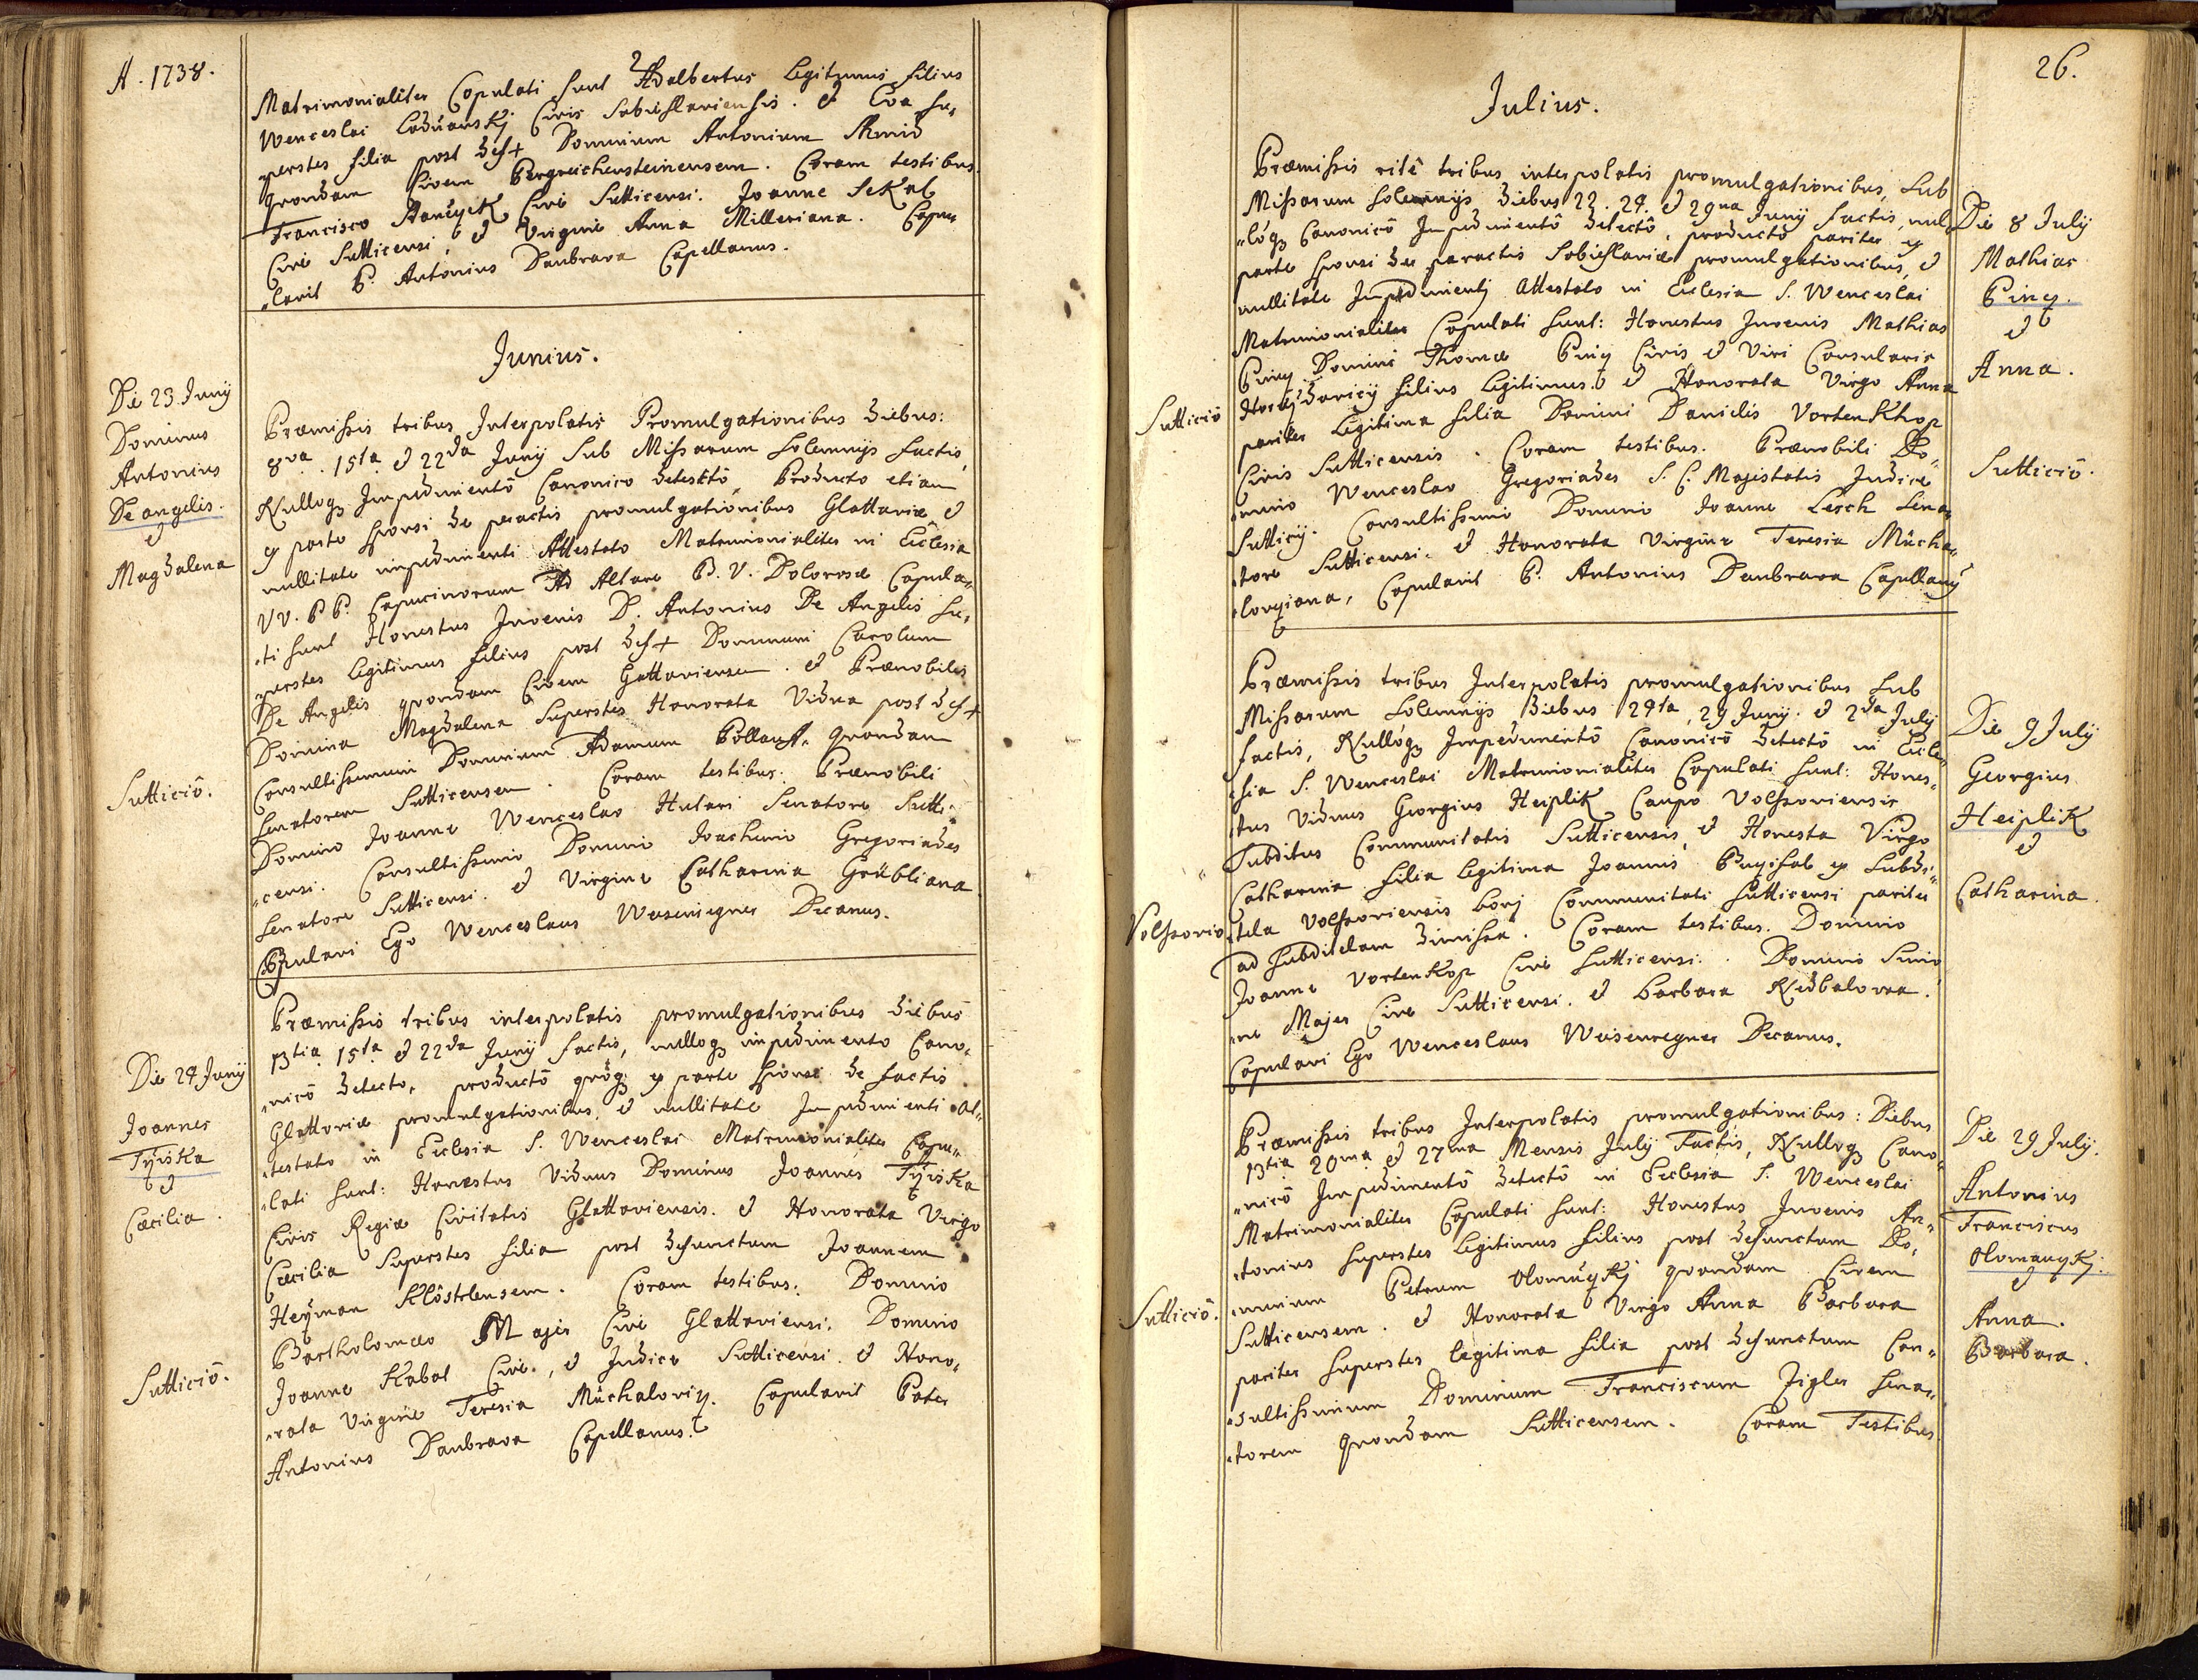 A. 1738.
Matrimonialiter Copulati sunt Adalbertus Legitimus filius
Wenceslai Civis Sobieslaviensis. et Eva su„
„perstes filia post def+ Dominum Antonium
quondam Civem Bergreichensteinensem. Coram testibus
Francisco Cive Sutticensi. Joanne Sekal
Cive Sutticensi, et Virgine Anna Milleriana. Copu„
„lavit P. Antonius Daubrava Capellanus.
Junius.
Die 23 Junij
Dominus
Antonius
De angelis.
et
Magdalena
Suttició.
Præmissis tribus Interpolatis Promulgationibus diebus:
8va. 15ta et 22da Junij Sub Missarum Solemnijs factis,
Nulloq₃ Impedimentô Canonico detectô, Producto etiam
ex parte sponsi de peractis promulgationibus Glattaviæ et
nullitate impedimenti Attestato Matrimonialiter in Ecclesia
VV. PP. Capucinorum Ad Altare B. V. Dolorosæ Copula„
„ti sunt Honestus Juvenis D. Antonius De Angelis su„
„perstes Legitimus filius post def+ Dominum Carolum
De Angelis quondam Civem Glattaviensem. et Prænobilis
Domina Magdalena Superstes Honorata Vidua post def+
Consultissimum Dominum Adamum quondam
Senatorem Sutticensem. Coram testibus: Prænobili
Domino Joanne Wenceslao Hutari Senatore Sutti„
„censi. Consultissimo Domino Joachimo Gregoriades
Senatore Sutticensi. et Virgine Catharina Grübliana
Copulavi Ego Wenceslaus Weisenregner Decanus.
Die 24 Junij
Joannes
Tyiska
et
Cæcilia.
Suttició.
Præmissis tribus interpolatis promulgationibus diebus
13tia 15ta et 22da Junij factis, nulloq₃ impedimento Cano„
„nicô detecto, productô quoq₃ ex parte sponsi de factis
Glattoviæ promulgationibus, et nullitate Impedimenti at„
„testato in Ecclesia S. Wenceslai Matrimonialiter Copu„
„lati sunt: Honestus Viduus Dominus Joannes Tyiska
Civis Regiæ Civitatis Glattoviensis. et Honorata Virgo
Cæcilia Superstes filia post defunctum Joannem
Heyman Klöstrlensem. Coram testibus: Domino
Bartholomæo Majer Cive Glattoviensi. Domino
Joanne Kabat Cive, et Judice Sutticensi. et Hono„
„rata Virgine Teresia Mûchalovix. Copulavit Pater
Antonius Daubrava Capellanus.
26.
Julius.
Suttició
Præmissis ritê tribus interpolatis promulgationibus, Sub
Missarum Solemnijs diebus 22. 24. et 29na Junij factis, nul„
„lóq₃ Canonicô Impedimentô detectô, productô pariter ex
parte sponsi de peractis Sobieslaviæ promulgationibus, et
nullitate Impedimentj Attestato in Ecclesia S. Wenceslai
Matrimonialiter Copulati sunt: Honestus Juvenis Mathias
Domini Thomæ Civis et Viri Consularis
filius Legitimus. et Honorata Virgo Anna
pariter Legitima filia Domini Danielis Vortenkhop
Civis Sutticensis. Coram testibus. Prænobili Do„
„mino Wenceslao Gregoriades S. C. Majestatis Judice
Sutticij. Consultissimo Domino Joanne Lesch Sena„
„tore Sutticensi. et Honorata Virgine Teresia Mûcha„
„loviana, Copulavit P. Antonius Daubrava Capellanus
Die 8 July
Mathias
et
Anna.
Suttició.
Præmissis tribus Interpolatis promulgationibus Sub
Missarum Solemnijs Diebus 24ta, 29 Junij. et 2da July
factis, Nullóq₃ Impedimentô Canonicô detectô in Eccle„
„sia S. Wenceslai Matrimonialiter Copulati sunt: Hones„
„tus Viduus Georgius Heiplik Caupo Volssoviensis
Subditus Communitatis Sutticensis, et Honesta Virgo
Catharina filia Legitima Joannis ex Subdi„
„tela Volssoviensis bonj Communitati Sutticensi pariter
ad subditelam dimissa. Coram testibus. Domino
Joanne Vortenkop Cive Sutticensi. Domino Simo„
„ne Majer Cive Sutticensi. et Barbara Nedbalovva.
Copulavi Ego Wenceslaus Weisenregner Decanus.
Volssovio
Die 9 July
Georgius
Heiplik
et
Catharina.
Præmissis tribus Interpolatis promulgationibus: Diebus
13tia 20ma et 27ma Mensis July Factis, Nulloq₃ Cano„
„nicô Impedimentô detectô in Ecclesia S. Wenceslai
Matrimonialiter Copulati sunt: Honestus Juvenis An„
„tonius superstes Legitimus filius post defunctum Do„
„minum Petrum Olomuczkj quondam Civem
Sutticensem. et Honorata Virgo Anna Barbara
pariter superstes legitima filia post defunctum Con„
„sultissimum Dominum Franciscum Zigler Sena„
„torem quondam Sutticensem. Coram Testibus
Suttició.
Die 29 July.
Antonius
Franciscus
et
Anna.
Barbara.